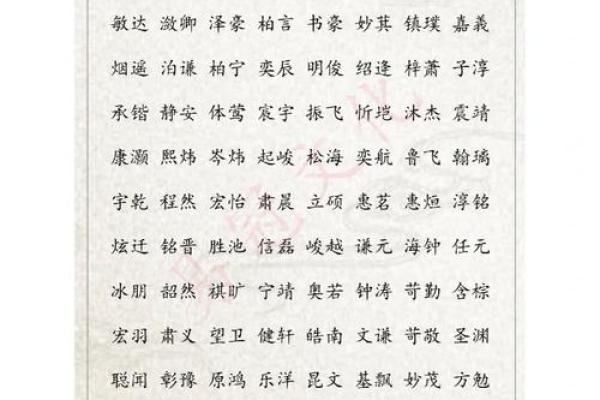 敏达 潋卿 泽豪 柏言 书豪 妙萁 镇璞 嘉義
烟遥 泊谦 柏宁 奕辰 明俊 绍逢 梓萧 子淳
承锴 静安 体莺 宸宇 振飞 忻垲 沐杰 震靖
康灏 熙炜 岑炜 起峻 松海 奕航 鲁飞 翰璃
宇乾 程然 宏怡 肃晨 立硕 惠茗 惠烜 淳铭
炫迁 铭晋 胜池 信磊 峻越 谦元 海钟 任元
冰朋 韶然 祺旷 宁靖 奥若 钟涛 苛勤 含棕
宏羽 肃义 望卫 健轩 皓南 文谦 苛敬 圣渊
聪闻 彰豫 原鸿 乐洋 昆文 基飘 妙茂 方勉